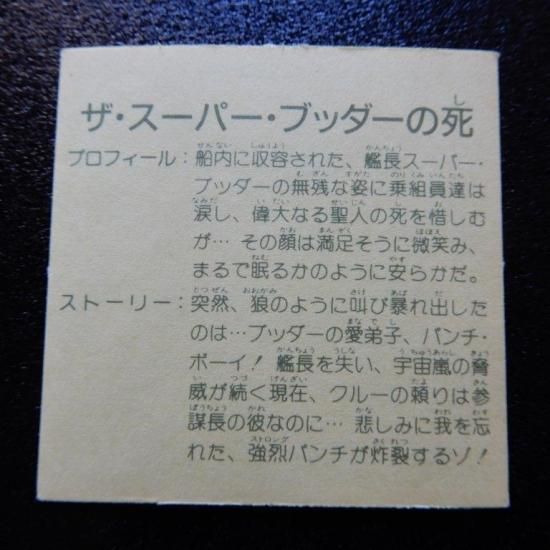 ザ・スーパー・ブッダーの死
プロフィール：船内に収容された、艦長スーパー・
ブッダーの無残な姿に乗組員達は
涙し、偉大なる聖人の死を惜しむ
が… その顔は満足そうに微笑み、
まるで眠るかのように安らかだ。
ストーリー：突然、狼のように叫び暴れ出した
のは…ブッダーの愛弟子、パンチ・
ボーイ！ 艦長を失い、宇宙嵐の脅
威が続く現在、クルーの頼りは参
謀長の彼なのに… 悲しみに我を忘
れた、強烈パンチが炸裂するゾ！